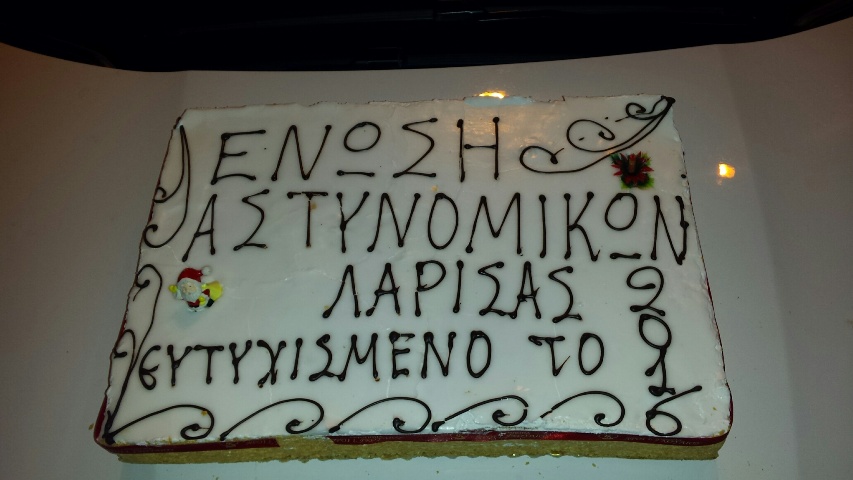 ΕΝΩΣΗ
ΑΣΤΥΝΟΜΙΚΩΝ
ΛΑΡΙΣΑΣ
ΕΥΤΥΧΙΣΜΕΝΟ ΤΟ 2016